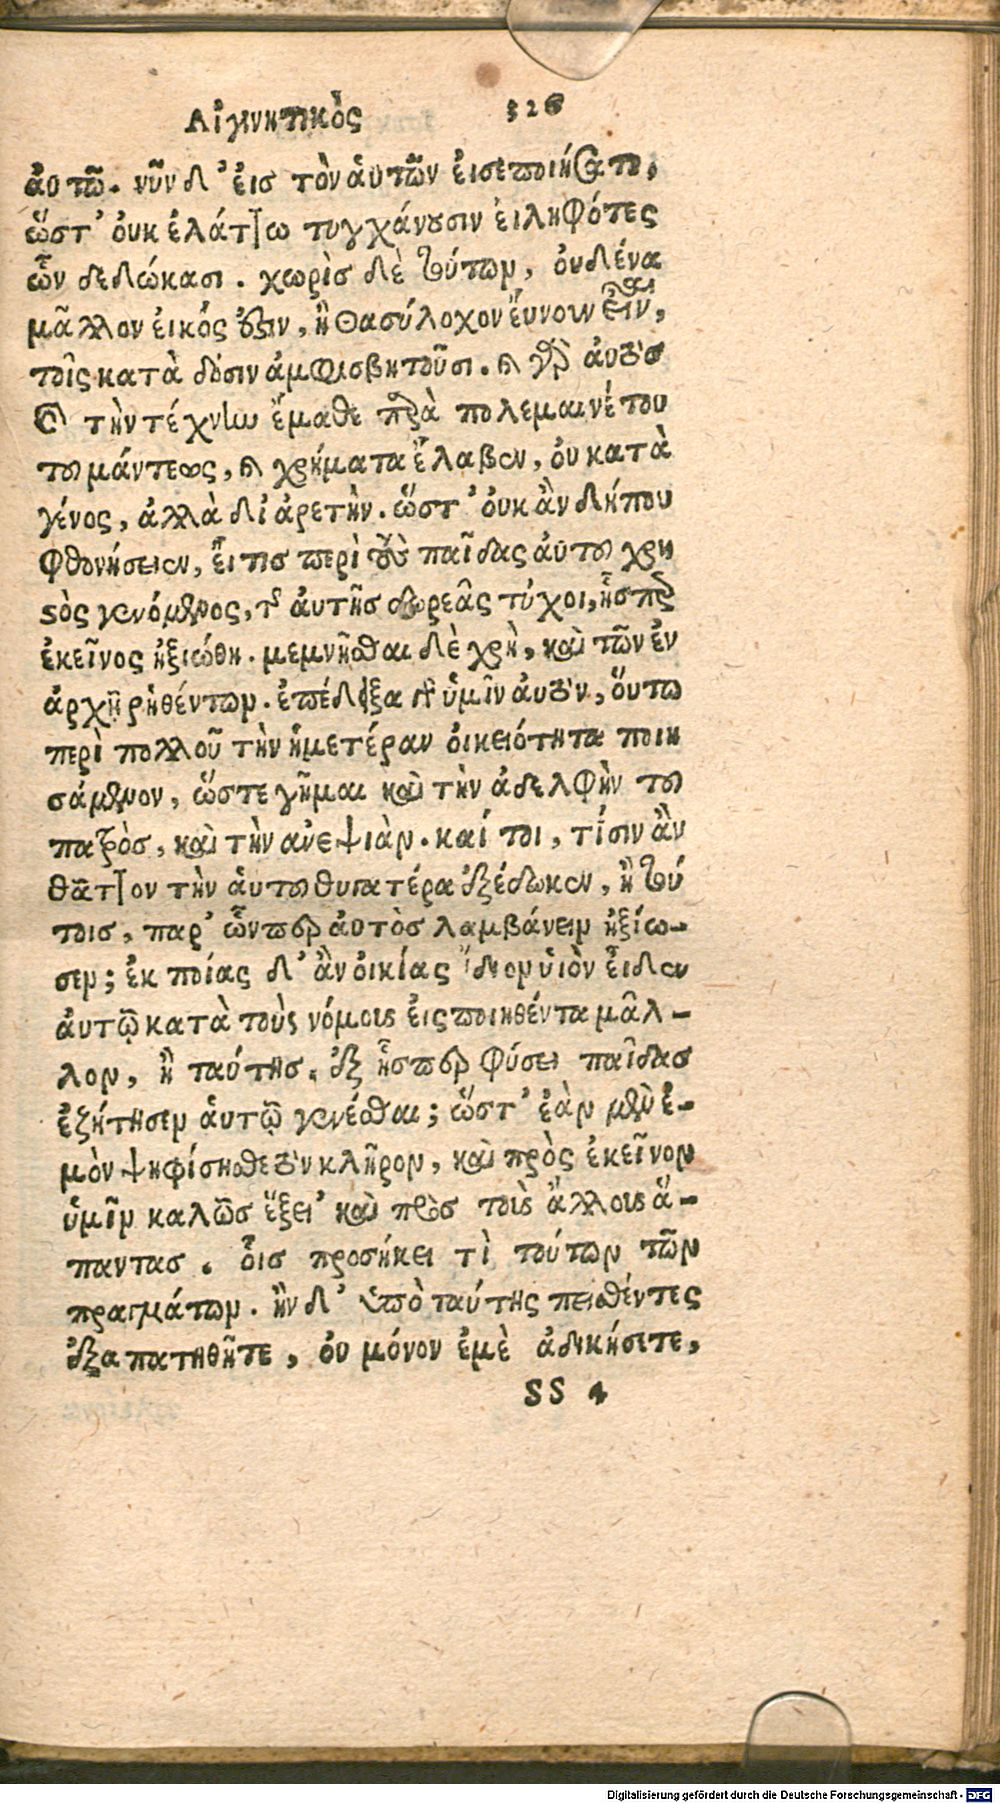 Αἰγινητικός 326
αὑτῷ. νῦν δ' εἰς τὸν αὑτῶν εἰσεποιήσατο,
ὥστ' οὐκ ἐλάττω τυγχάνουσιν εἰληφότες
ὧν δεδώκασι. χωρὶς δὲ τούτων, οὐδένα
μᾶλλον εἰκός ἐστιν, ἢ Θρασύλοχον εὔνουν εἶναι,
τοῖς κατὰ δόσιν ἀμφισβητοῦσι. καὶ γὰρ αὐτὸς
καὶ τὴν τέχνην ἔμαθε παρὰ πολεμαινέτου
τοῦ μάντεως, καὶ χρήματα ἔλαβεν, οὐ κατὰ
γένος, ἀλλὰ δι' ἀρετὴν. ὥστ' οὐκ ἂν δήπου
φθονήσειεν, εἴ τις περὶ τοὺς παῖδας αὐτοῦ χρη
στὸς γενόμενος, τῆς αὐτῆς δωρεᾶς τύχοι, ἧσπερ
ἐκεῖνος ἠξιώθη. μεμνῆσθαι δὲ χρὴ, καὶ τῶν ἐν
ἀρχῇ ῥηθέντων. ἐπέδειξα γὰρ ὑμῖν αὐτὸν, οὕτω
περὶ πολλοῦ τὴν ἡμετέραν οἰκειότητα ποιη
σάμενον, ὥστε γῆμαι καὶ τὴν ἀδελφὴν τοῦ
πατρὸς, καὶ τὴν ἀνεψιὰν. καί τοι, τίσιν ἂν
θᾶττον τὴν αὑτοῦ θυγατέρα ἐξέδωκεν, ἢ τού
τοις, παρ' ὧνπερ αὐτὸς λαμβάνειν ἠξίω-
σεν; ἐκ ποίας δ' ἂν οἰκίας ἥδιον ὑιὸν εἶδεν
αὑτῷ κατὰ τοὺς νόμους εἰσποιηθέντα μᾶλ-
λον, ἢ ταύτης. ἐξ ἧσπερ φύσει παῖδας
ἐζήτησεν αὑτῷ γενέσθαι; ὥστ' ἐὰν μὲν ἐ-
μὸν ψηφίσησθε τὸν κλῆρον, καὶ πρὸς ἐκεῖνον
ὑμῖν καλῶς ἕξει καὶ πρὸς τοὺς ἄλλους ἅ-
παντας. οἷς προσήκει τὶ τούτων τῶν
πραγμάτων. ἢν δ' ὑπὸ ταύτης πεισθέντες
ἐξαπατηθῆτε, οὐ μόνον ἐμὲ ἀδικήσετε,
SS 4
Digitalisierung gefördert durch die Deutsche Forschungsgemeinschaft - DFG